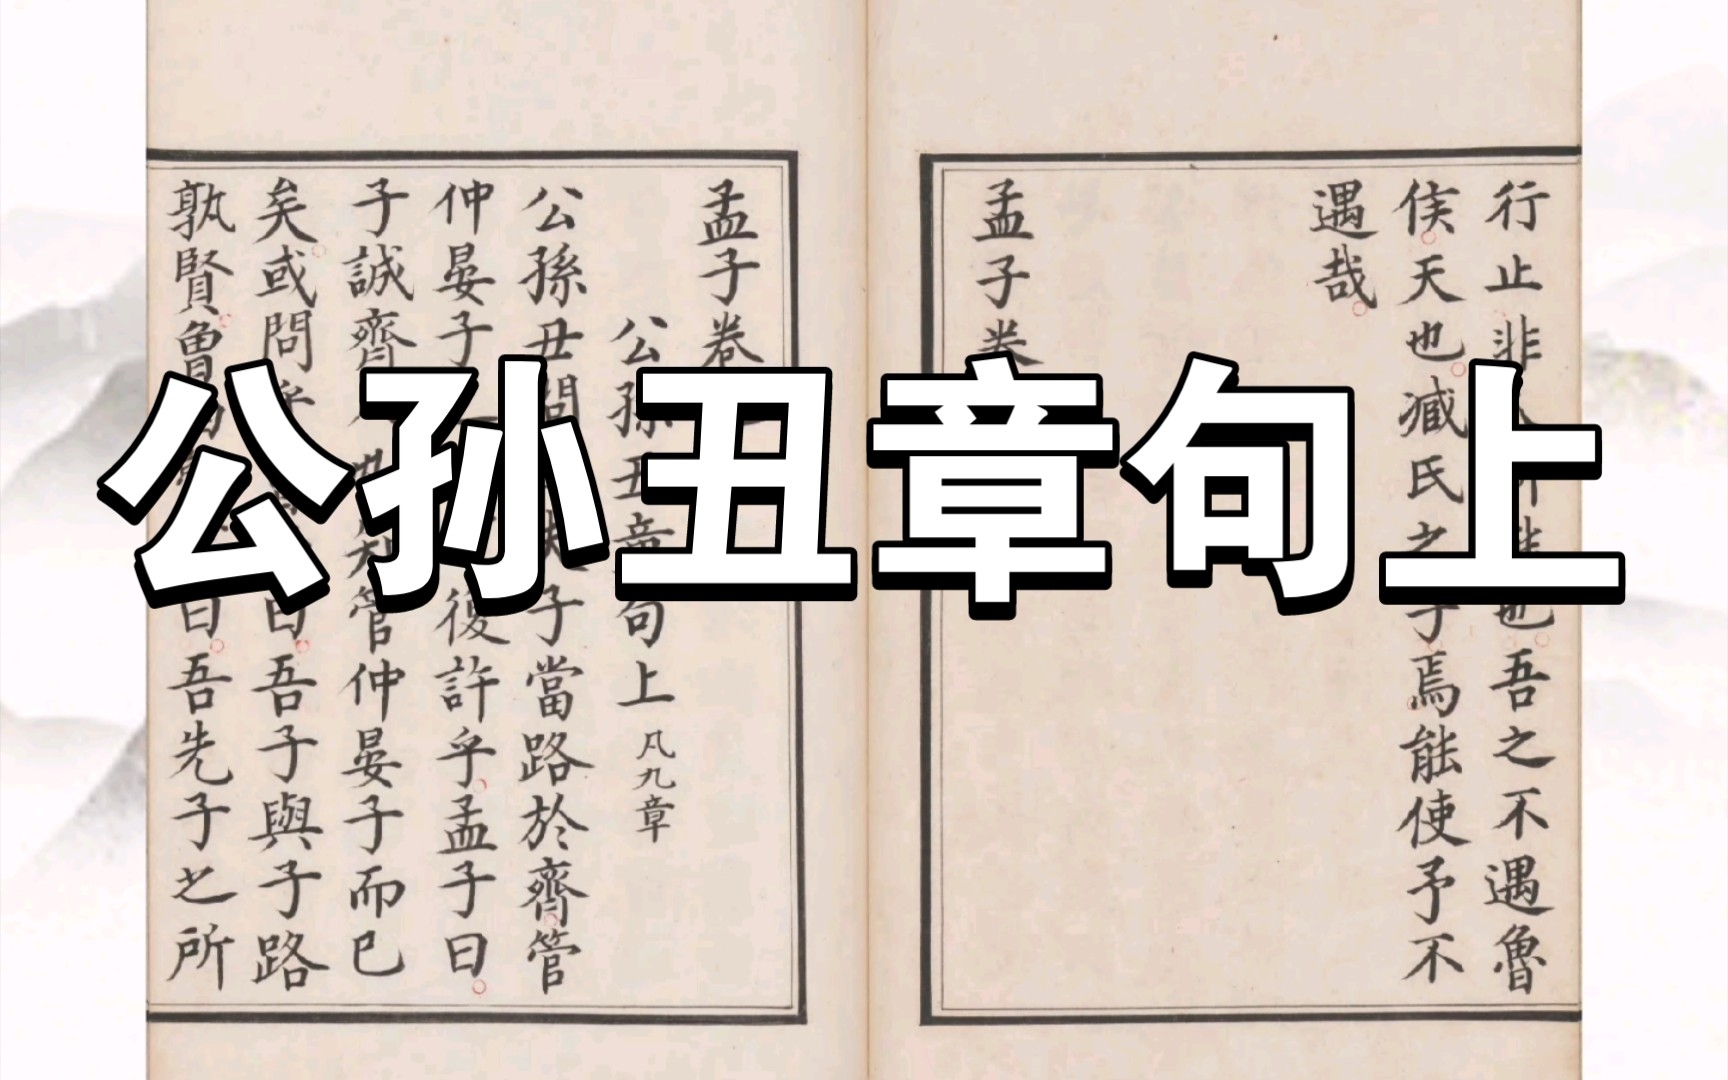 公孙丑章句上
行止非也吾之不遇魯
侯天也臧氏之子焉能使予不
遇哉
孟子卷
孟子卷
公孫丑章句上 凡九章
公孫丑問夫子當路於齊管
仲晏子復許乎孟子曰
子誠齊也知管仲晏子而已
矣或問乎曰吾子與子路
孰賢曾曰吾先子之所